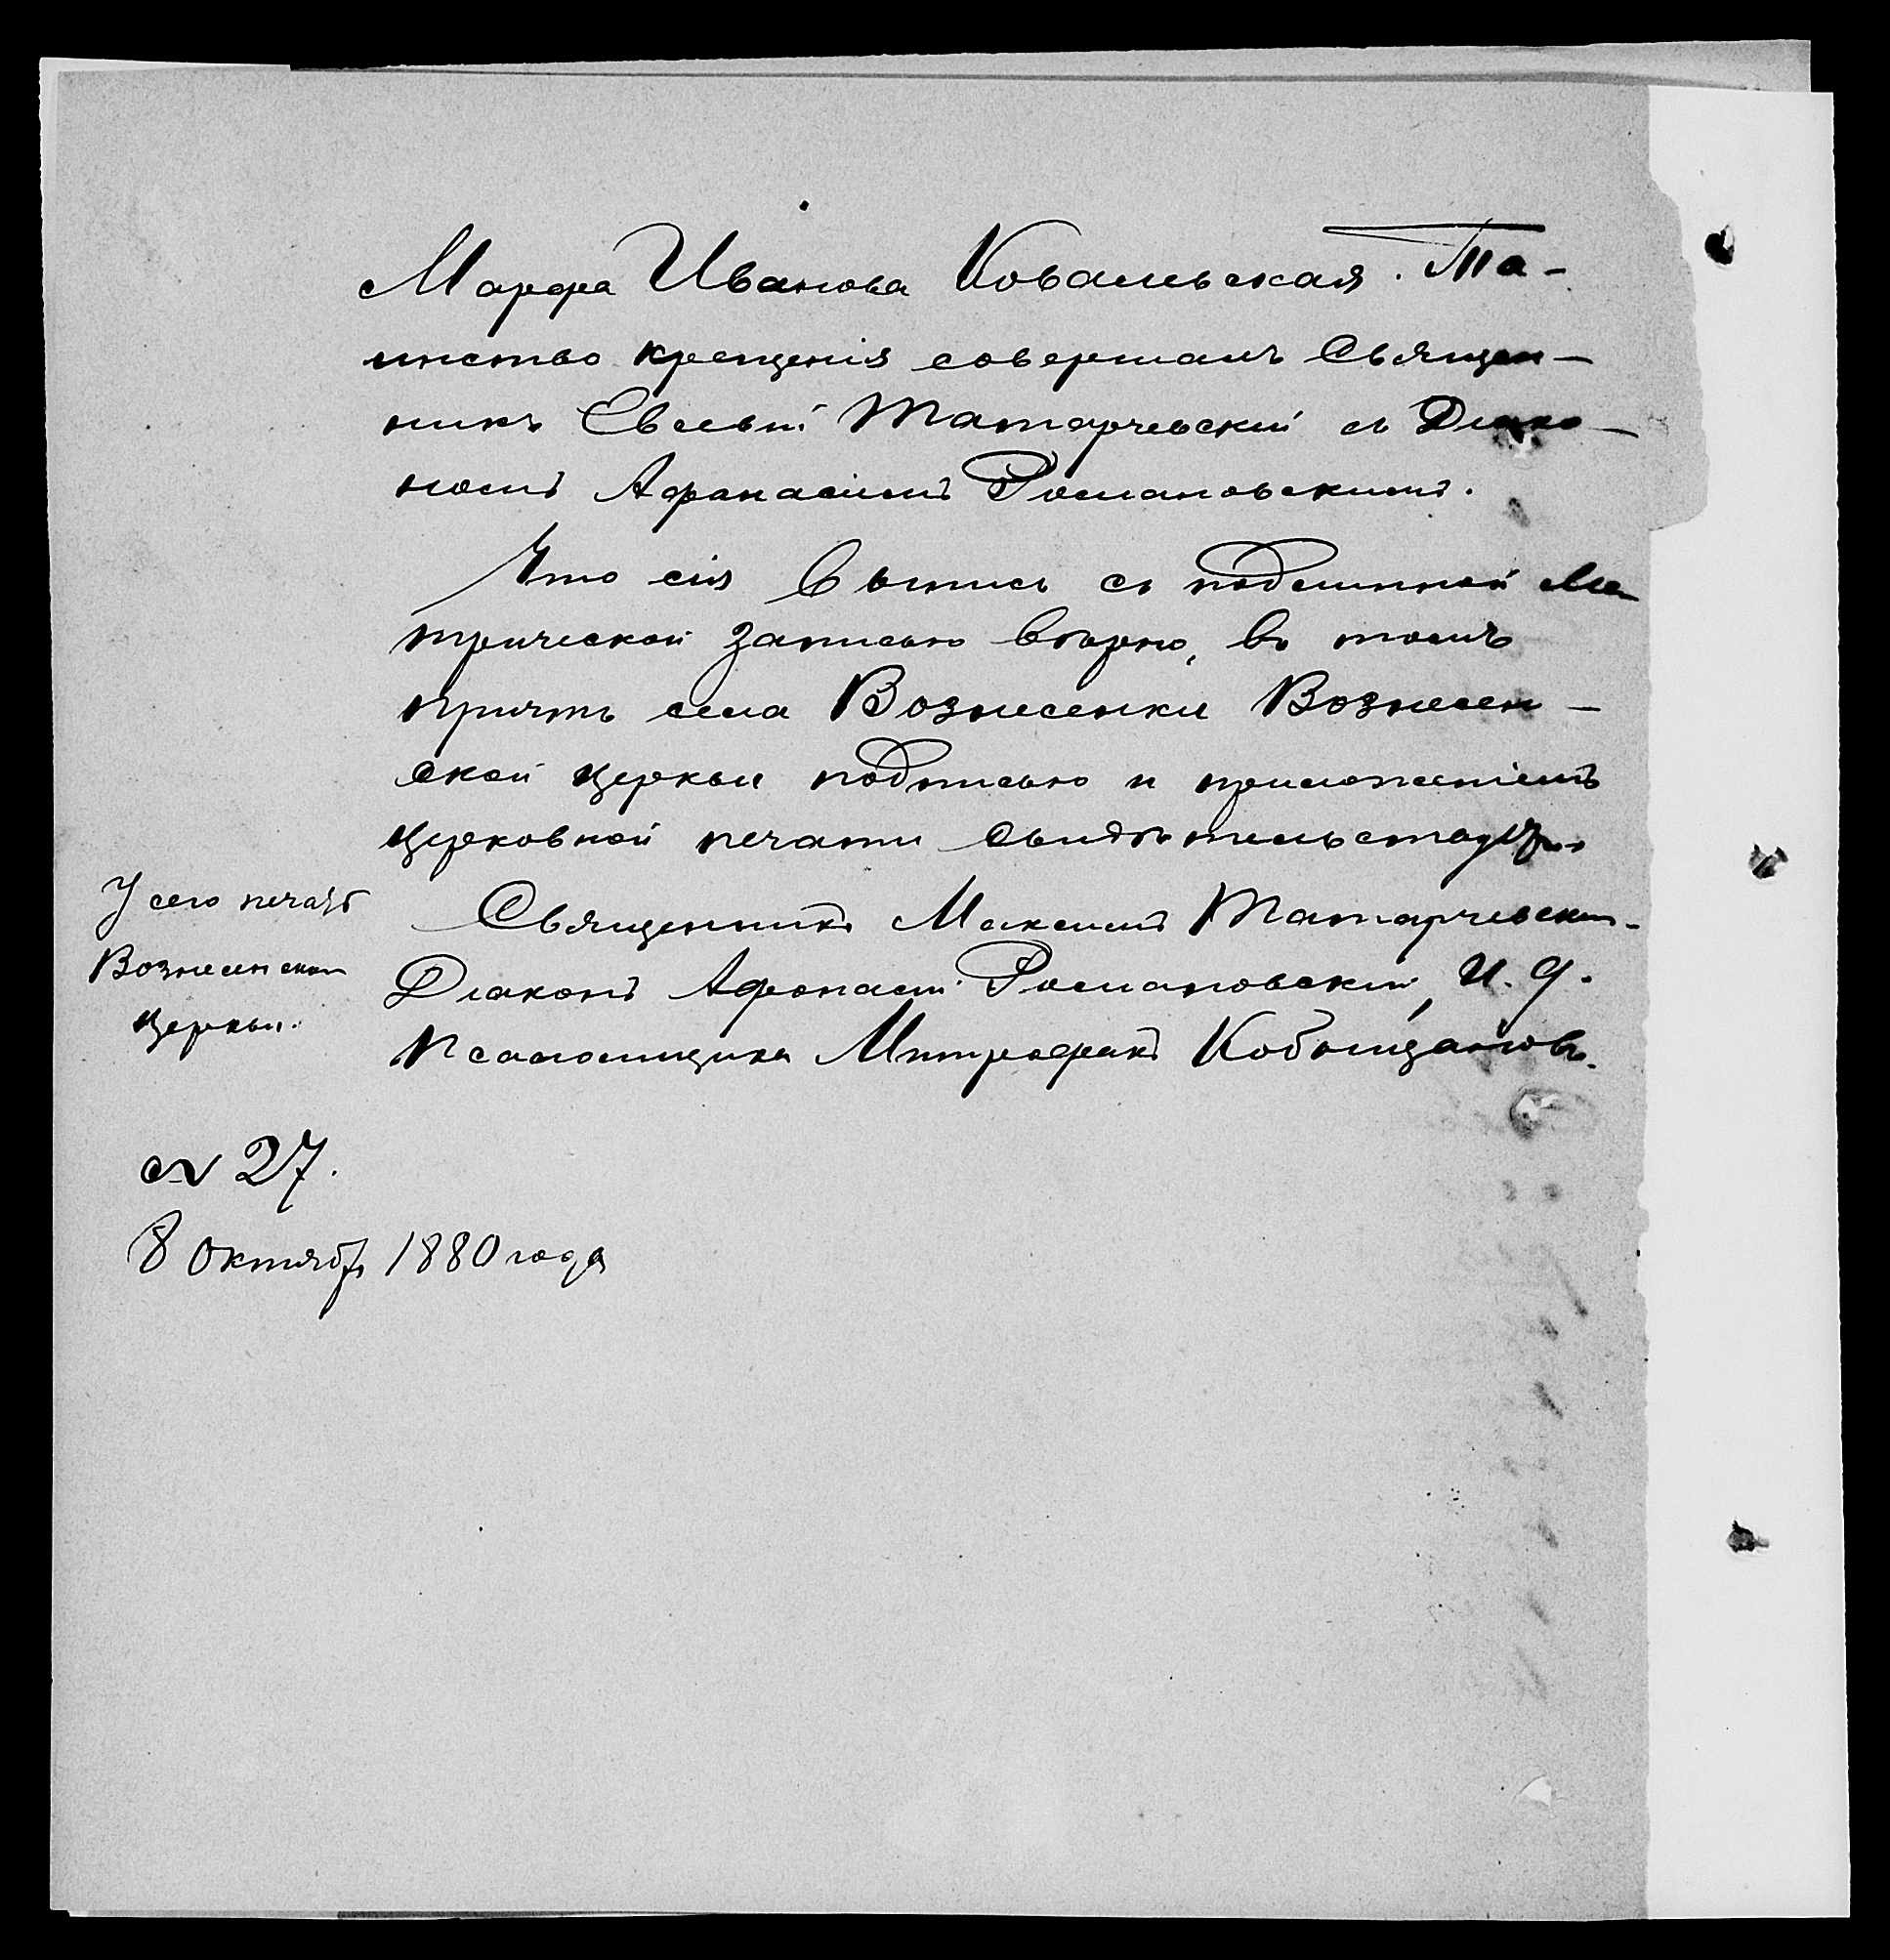 Марѳа Иванова Ковальская. Та-
инство крещенія совершалъ Священ-
никъ Евсевій Татарчевскій съ Діако-
номъ Афанасіемъ Романовскимъ.
Что сія Выпись съ подлинной Ме-
трической записью вѣрно, въ томъ
причтъ села Вознесенки Вознесен-
ской церкви подписью и приложеніемъ
церковной печати свидѣтельствуетъ
Священникъ Максимъ Татарчевскій.
Діаконъ Афонасій Романовскій, И. д.
Псаломщика Митрофанъ Кобыщановъ.
У сего печать
Вознесенской
церкви.
№ 27.
8 Октября 1880 года